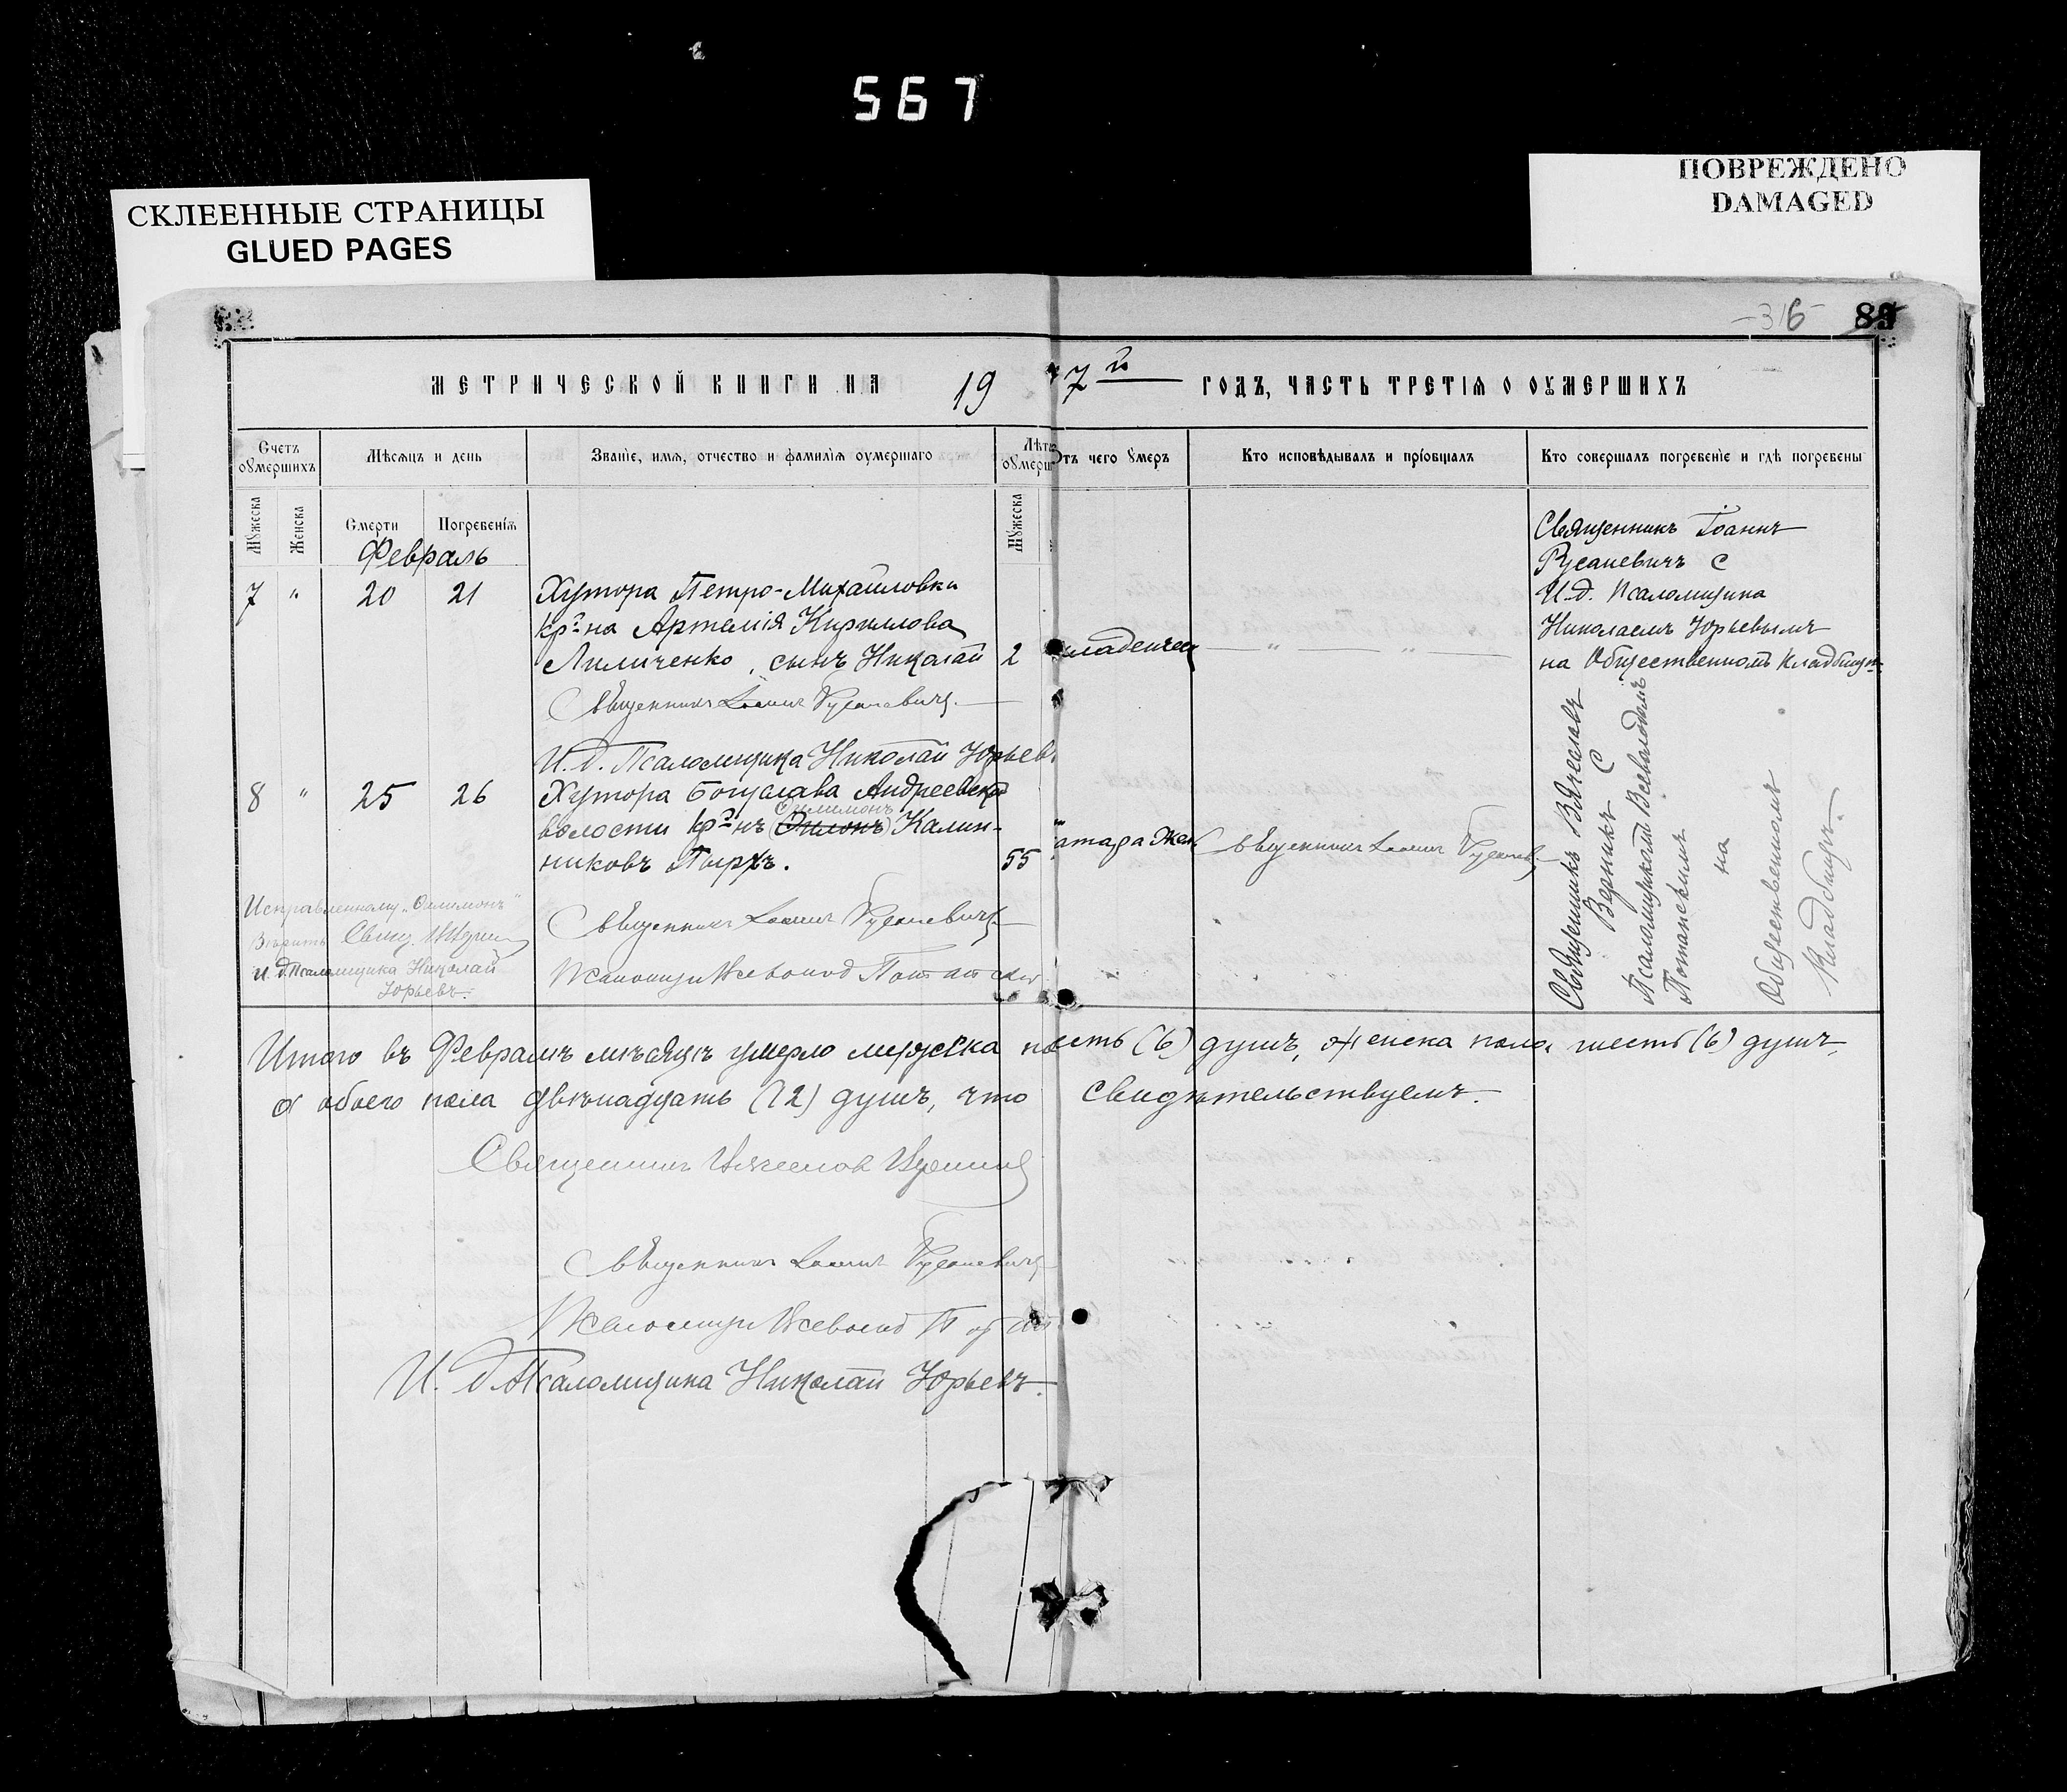 567
СКЛЕЕННЫЕ СТРАНИЦЫ
GLUED PAGES
ПОВРЕЖДЕНО
DAMAGED
-316- 89
МЕТРИЧЕСКОЙ КНИГИ НА 19 7й ГОДЪ, ЧАСТЬ ТРЕТІЯ О ОУМЕРШИХЪ
Счетъ оумершихъ
Мѣсяцъ и день
Званіе, имя, отчество и фамилія оумершаго
Лѣта оумерш
Отъ чего умеръ
Кто исповѣдывалъ и пріобщалъ
Кто совершалъ погребеніе и гдѣ погребены
Мужеска
Женска
Смерти
Погребенія
Мужеска
Февраль
7 " 20 21
Хутора Петро-Михайловки
кр-на Артемія Кириллова
Лиличенко, сынъ Николай 2
младенчес — " — " —
Священникъ Іоаннъ
Русаневичъ с
И.д. Псаломщика
Николаемъ Юрьевымъ
на Общественномъ кладбищѣ
Священникъ Іоаннъ Русаневичъ
И. д. Псаломщика Николай Юрьевъ
8 " 25 26
Хутора Богуслава Андреевской
Филимонъ
волости кр-нъ (Филонъ) Калин-
никовъ Пырхъ. 55
Священникъ Іоаннъ Русаневичъ
Священникъ Вячеславъ
с
Псаломщикомъ Всеволодомъ
Потапскимъ
на
Общественномъ
кладбищѣ.
Исправленному "Филимонъ"
Вѣрить Свящ.
И. д. Псаломщика Николай
Юрьевъ.
Священникъ Іоаннъ Русаневичъ
Псаломщ Всеволод Потапски
Итого въ Февралѣ мѣсяцѣ умерло мужска шесть (6) душъ, женска пола шесть (6) душъ,
а обоего пола двѣнадцать (12) душъ, что свидѣтельствуемъ.
Священникъ Вячеслав
Священникъ Іоаннъ Русаневичъ
Псаломщ Всеволод
И. д. Псаломщика Николай Юрьевъ.